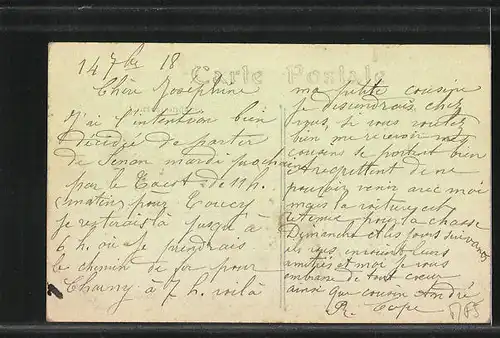 14 7bre 18
Carte Postale
Chère Joséphine
J'ai l'intention bien
décidée de partir
de Senan mardi prochain
par le Tacot de 11 h.
(matin) pour
je resterais là jusqu'à
6 h. où je prendrais
le chemin de fer pour
Charny à 7 h. voilà
ma petite cousine
je descendrais chez
vous, si vous voulez
bien me recevoir mes
cousins se portent bien
et regrettent de ne
pouvoir venir avec moi
mais la voiture est
retenue pour la chasse
Dimanche et les jours suivants
ils vous envoient leurs
amitiés et moi je vous
embrasse de tout cœur
ainsi que cousin André